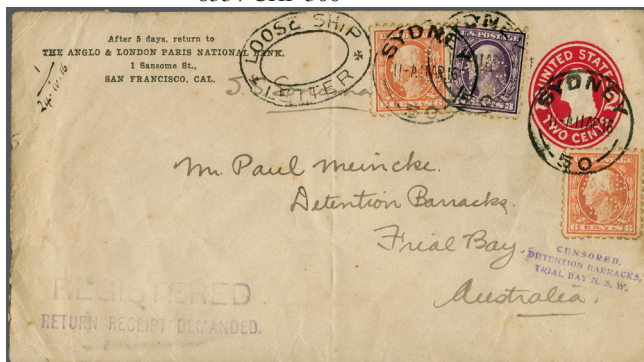 After 5 days, return to
THE ANGLO & LONDON PARIS NATIONAL BANK,
1 Sansome St.,
SAN FRANCISCO, CAL.
24-IV-16
LOOSE SHIP
LETTER
SYDNEY
11-A 11 AP 16
50
U.S. POSTAGE
SYDNEY
6 CENTS 6
UNITED STATES
TWO CENTS
SYDNEY
11 AP 16
50
6 CENTS 6
Mr. Paul Meincke.
Detention Barracks.
Trial Bay.
Australia.
CENSORED.
DETENTION BARRACKS,
TRIAL BAY N. S. W.
REGISTERED
RETURN RECEIPT DEMANDED.